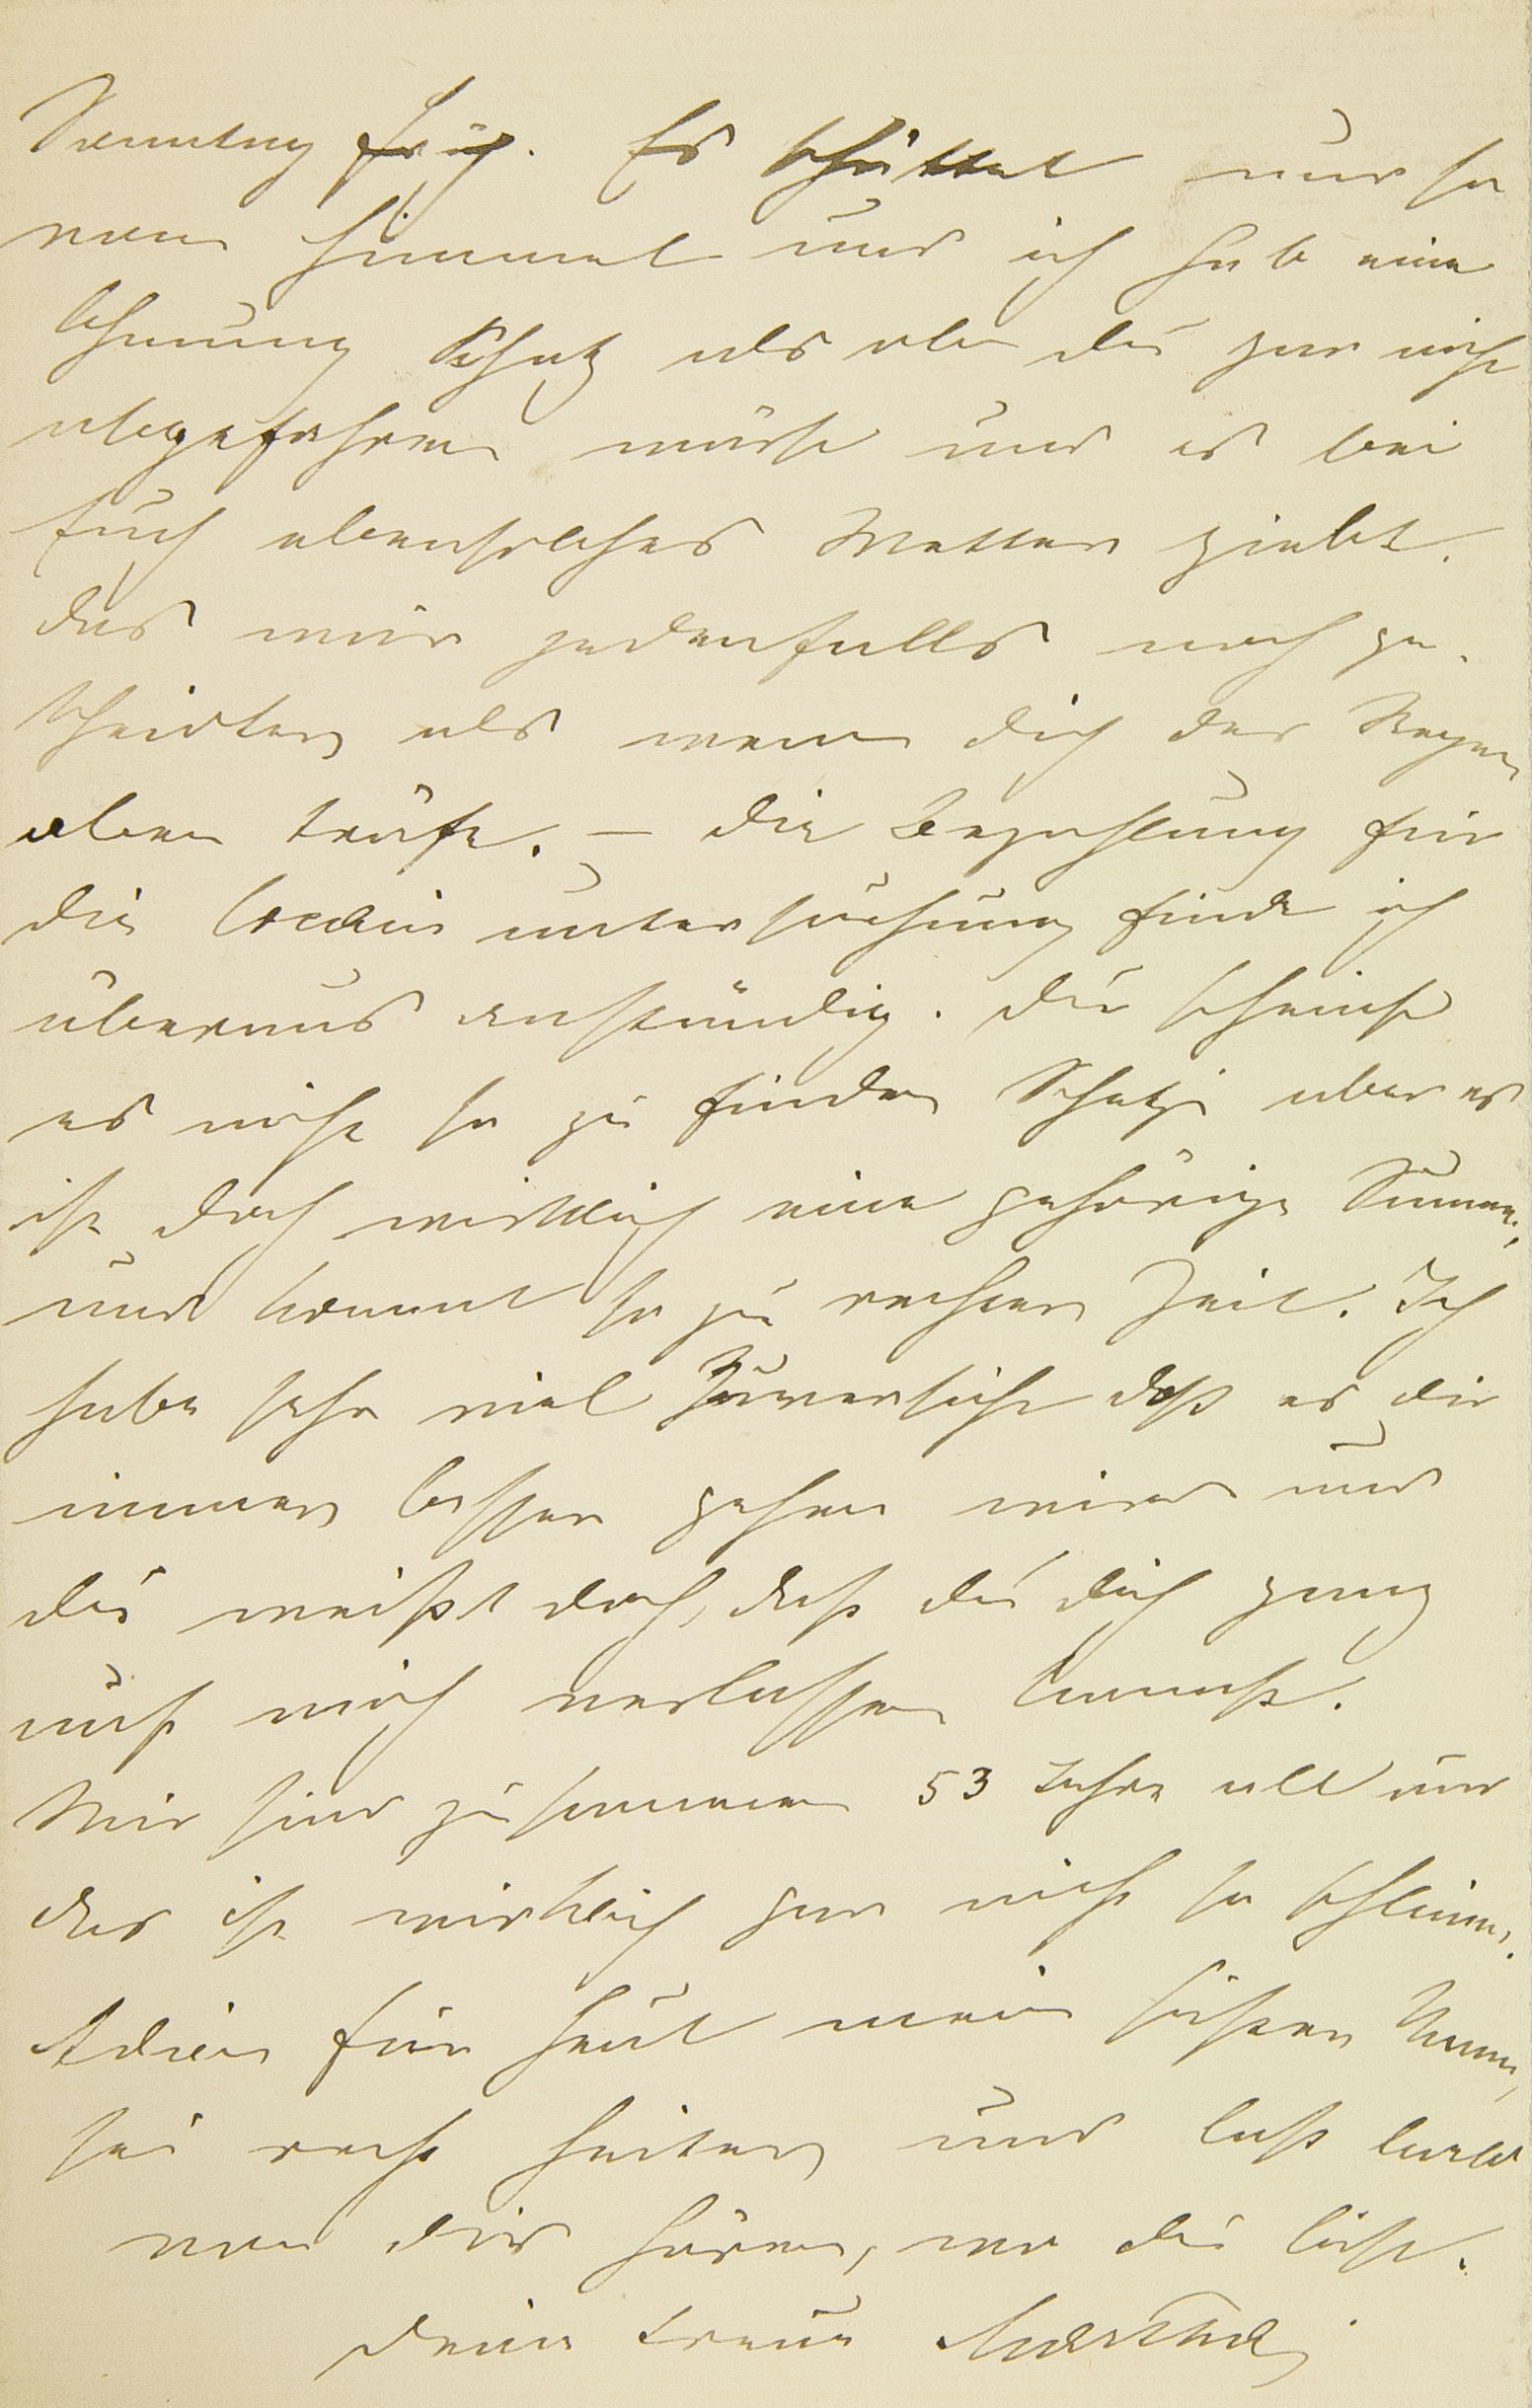 Sonntag früh. Es schüttet nur so
vom Himmel und ich hab eine
Ahnung Schatz als ob du gar nicht
abgefahren wärst und es bei
Euch ebensolches Wetter giebt.
das wär jedenfalls noch ge-
scheidter als wenn dich der Regen
oben träfe. – die Bezahlung für
die Cocain untersuchung finde ich
überaus anständig. du scheinst
es nicht so zu finden Schatzi aber es
ist doch wirklich eine gehörige Summe,
und kommt so zu rechter Zeit. Ich
habe sehr viel Zuversicht daß es dir
immer besser gehen wird und
du weißt doch, daß du dich ganz
auf mich verlassen kannst.
Wir sind zusammen 53 Jahre alt und
das ist wirklich gar nicht so schlimm.
Adieu für heut mein süßer Mann,
sei recht heiter und laß bald
von dir hören, wo du bist.
deine treue Martha